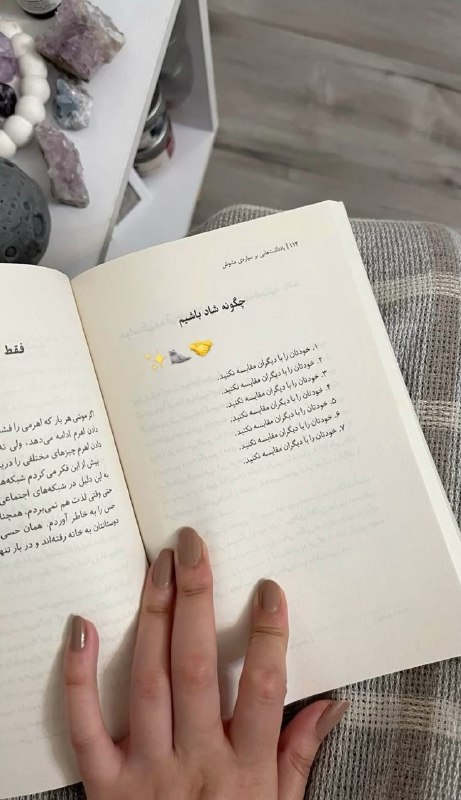 ۱۱۲ | یادداشت‌هایی بر سیاره‌ی مشوش
چگونه شاد باشیم
۱. خودتان را با دیگران مقایسه نکنید.
۲. خودتان را با دیگران مقایسه نکنید.
۳. خودتان را با دیگران مقایسه نکنید.
۴. خودتان را با دیگران مقایسه نکنید.
۵. خودتان را با دیگران مقایسه نکنید.
۶. خودتان را با دیگران مقایسه نکنید.
۷. خودتان را با دیگران مقایسه نکنید.
فقط
اگر موشی هر بار که اهرمی را
دادن اهرم ادامه می‌دهد، ولی
دادن اهرم چیزهای مختلفی را
پیش از این فکر می‌کردم
به این دلیل در شبکه‌های اجتماعی
حتی وقتی لذت هم نمی‌بردم،
حس را به خاطر آوردم. همان حسی
دوستانتان به خانه رفته‌اند و در بار